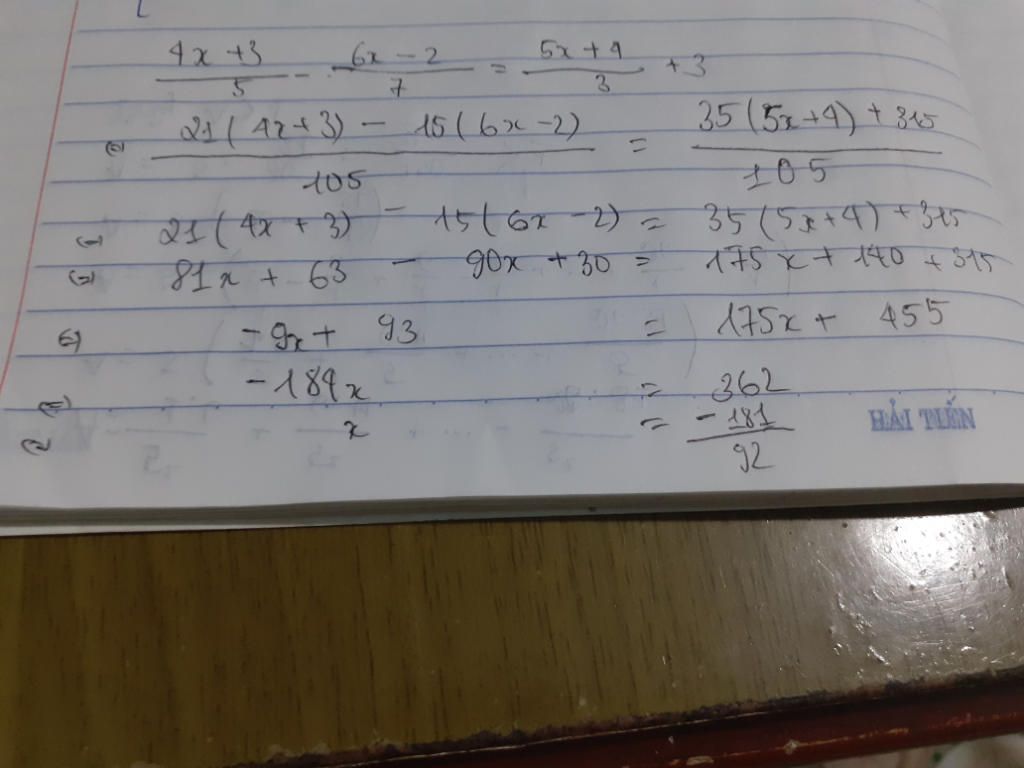 4x + 3 / 5 - 6x - 2 / 7 = 5x + 4 / 3 + 3
⇔ 21(4x + 3) - 15(6x - 2) / 105 = 35(5x + 4) + 315 / 105
⇔ 21(4x + 3) - 15(6x - 2) = 35(5x + 4) + 315
⇔ 81x + 63 - 90x + 30 = 175x + 140 + 315
⇔ -9x + 93 = 175x + 455
⇔ -184x = 362
⇔ x = -181 / 92
HẢI TIẾN